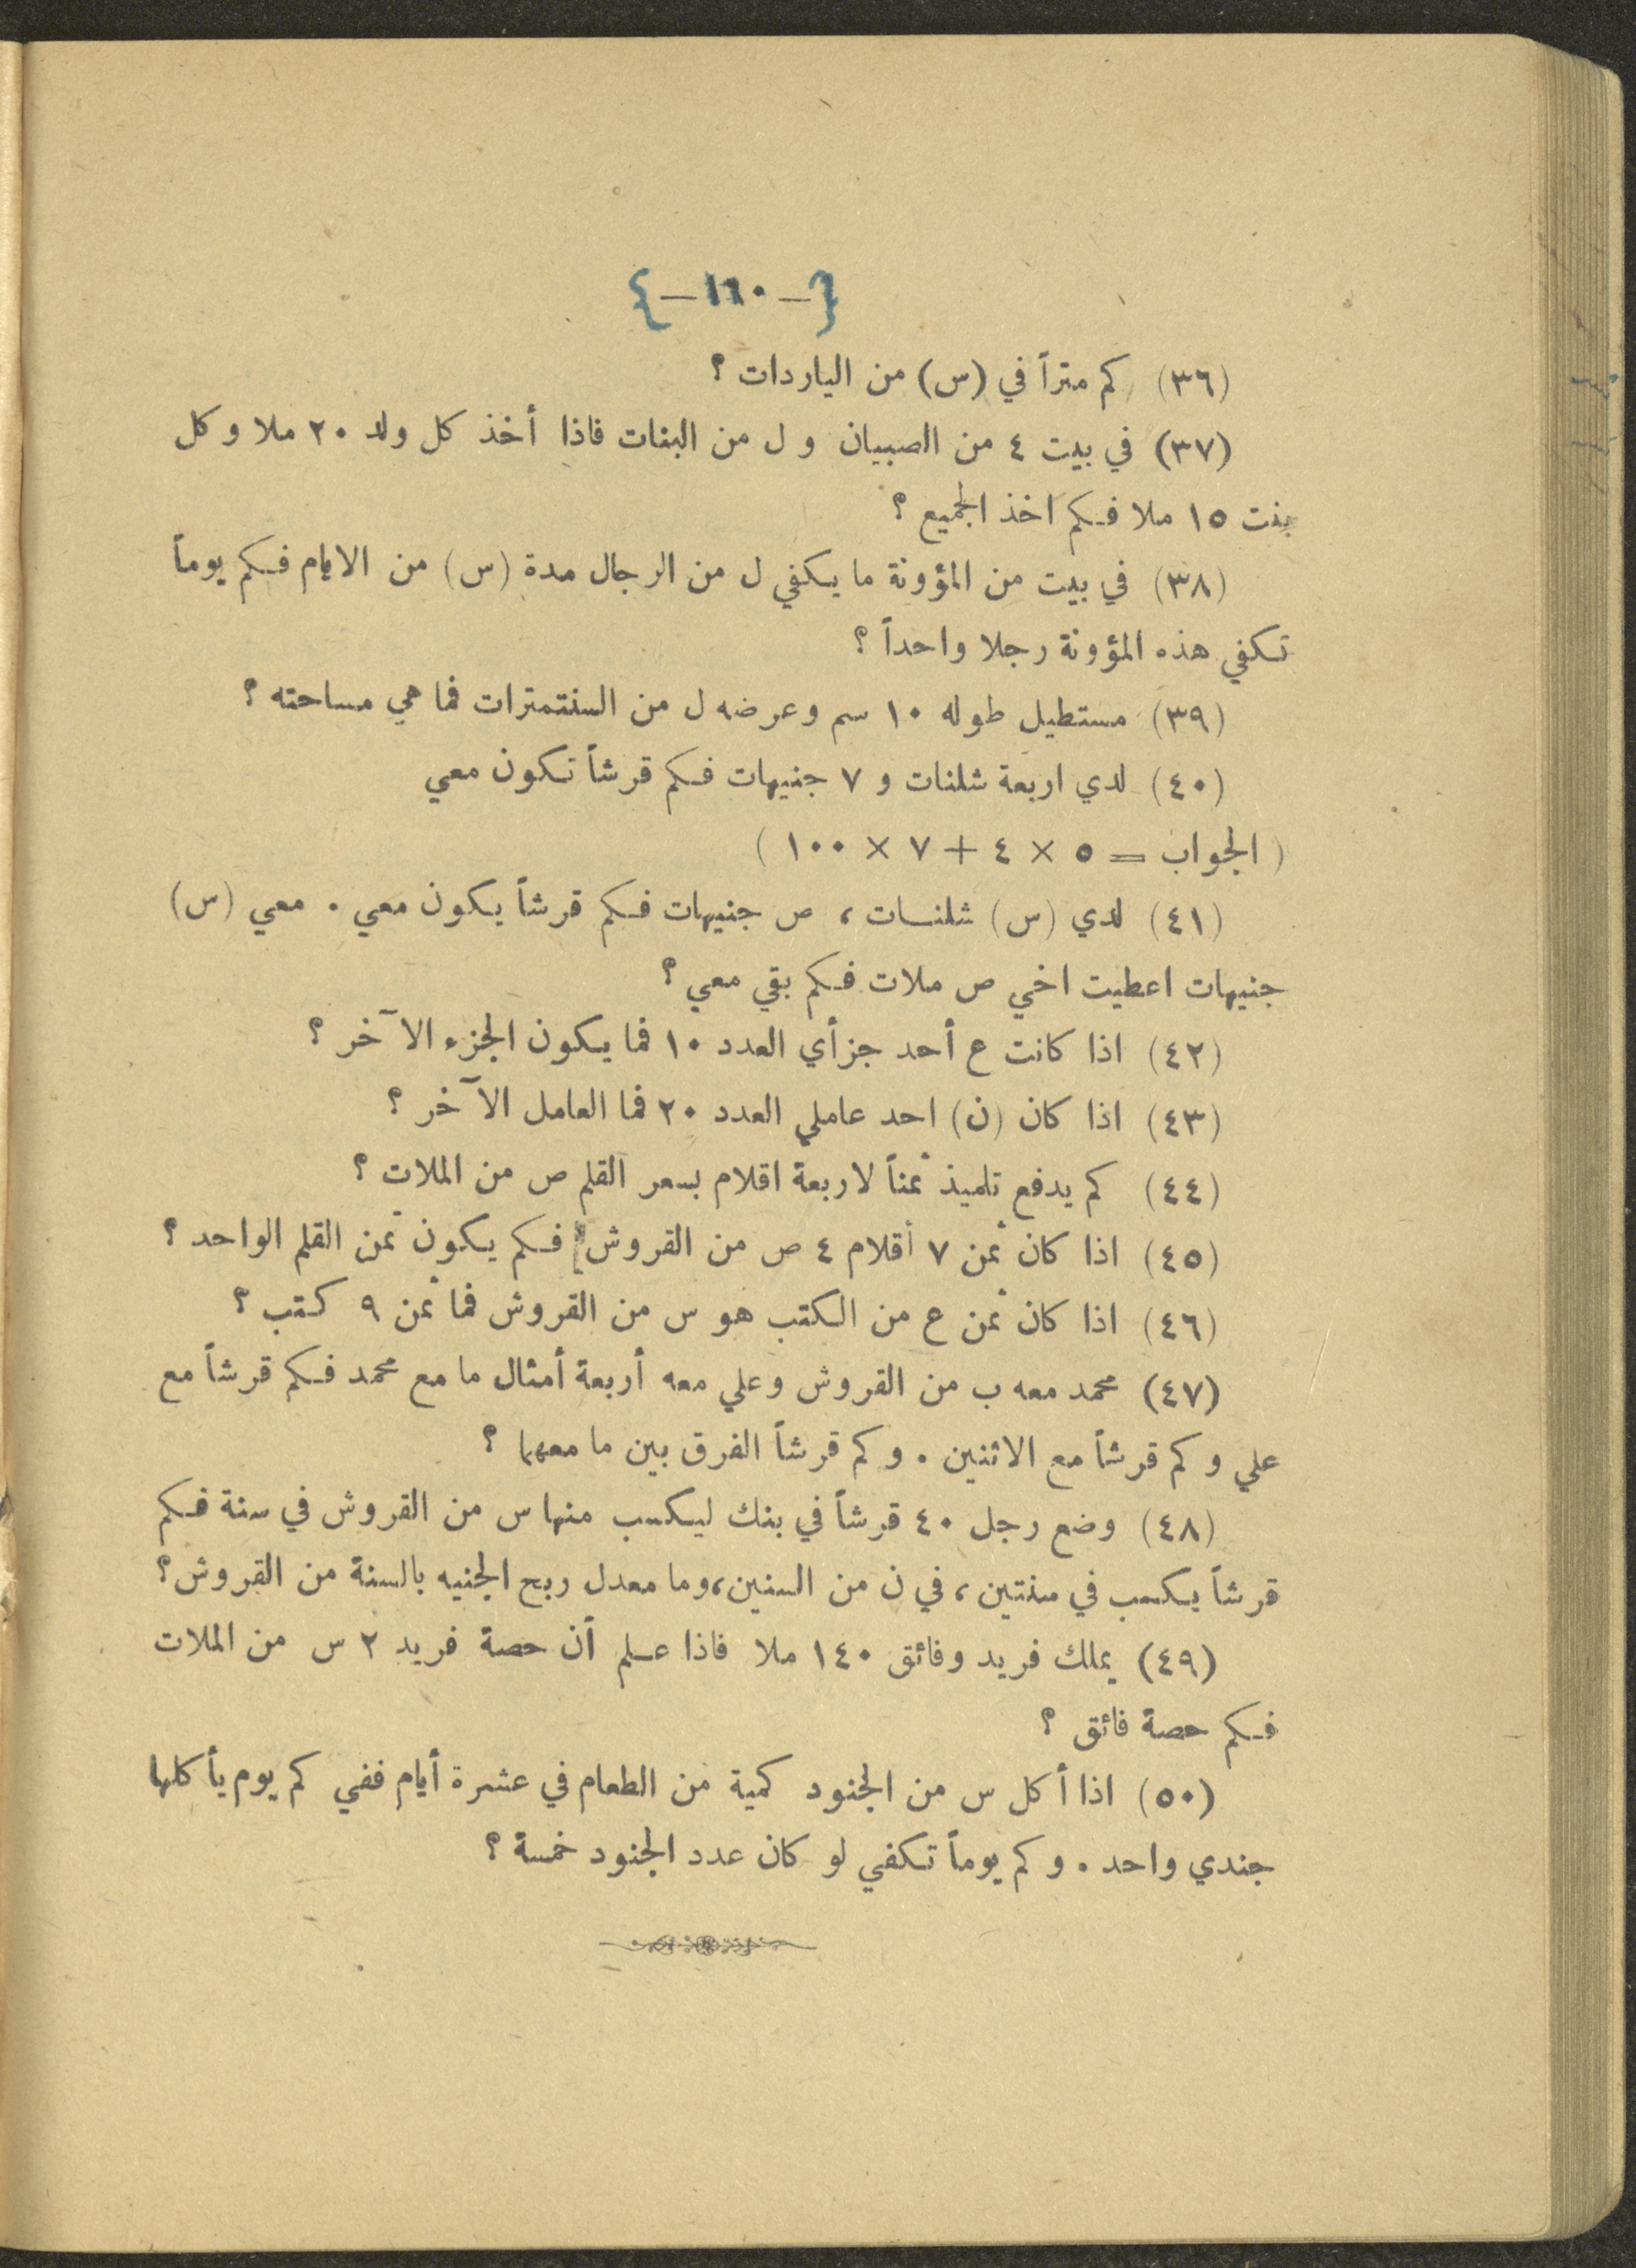 {-١٦٠-}
(٣٦) كم متراً في (س) من الياردات ؟
(٣٧) في بيت ٤ من الصبيان و ل من البنات فاذا أخذ كل ولد ٢٠ ملا وكل
بنت ١٥ ملا فكم اخذ الجميع ؟
(٣٨) في بيت من المؤونة ما يكفي ل من الرجال مدة (س) من الايام فكم يوماً
تكفي هذه المؤونة رجلا واحداً ؟
(٣٩) مستطيل طوله ١٠ سم وعرضه ل من السنتمترات فما هي مساحته ؟
(٤٠) لدي اربعة شلنات و ٧ جنيهات فكم قرشاً تكون معي
( الجواب = ٥ × ٤ + ٧ × ١٠٠ )
(٤١) لدي (س) شلنات ، ص جنيهات فكم قرشاً يكون معي . معي (س)
جنيهات اعطيت اخي ص ملات فكم بقي معي ؟
(٤٢) اذا كانت ع أحد جزأي العدد ١٠ فما يكون الجزء الآخر ؟
(٤٣) اذا كان (ن) احد عاملي العدد ٢٠ فما العامل الآخر ؟
(٤٤) كم يدفع تلميذ ثمناً لاربعة اقلام بسعر القلم ص من الملات ؟
(٤٥) اذا كان ثمن ٧ أقلام ٤ ص من القروش فكم يكون ثمن القلم الواحد ؟
(٤٦) اذا كان ثمن ع من الكتب هو س من القروش فما ثمن ٩ كتب ؟
(٤٧) محمد معه ب من القروش وعلي معه أربعة أمثال ما مع محمد فكم قرشاً مع
علي وكم قرشاً مع الاثنين . وكم قرشاً الفرق بين ما معهما ؟
(٤٨) وضع رجل ٤٠ قرشاً في بنك ليكسب منها س من القروش في سنة فكم
قرشاً يكسب في سنتين ، في ن من السنين ، وما معدل ربح الجنيه بالسنة من القروش ؟
(٤٩) يملك فريد وفائق ١٤٠ ملا فاذا علم أن حصة فريد ٢ س من الملات
فكم حصة فائق ؟
(٥٠) اذا أكل س من الجنود كمية من الطعام في عشرة أيام ففي كم يوم يأكلها
جندي واحد . وكم يوماً تكفي لو كان عدد الجنود خمسة ؟